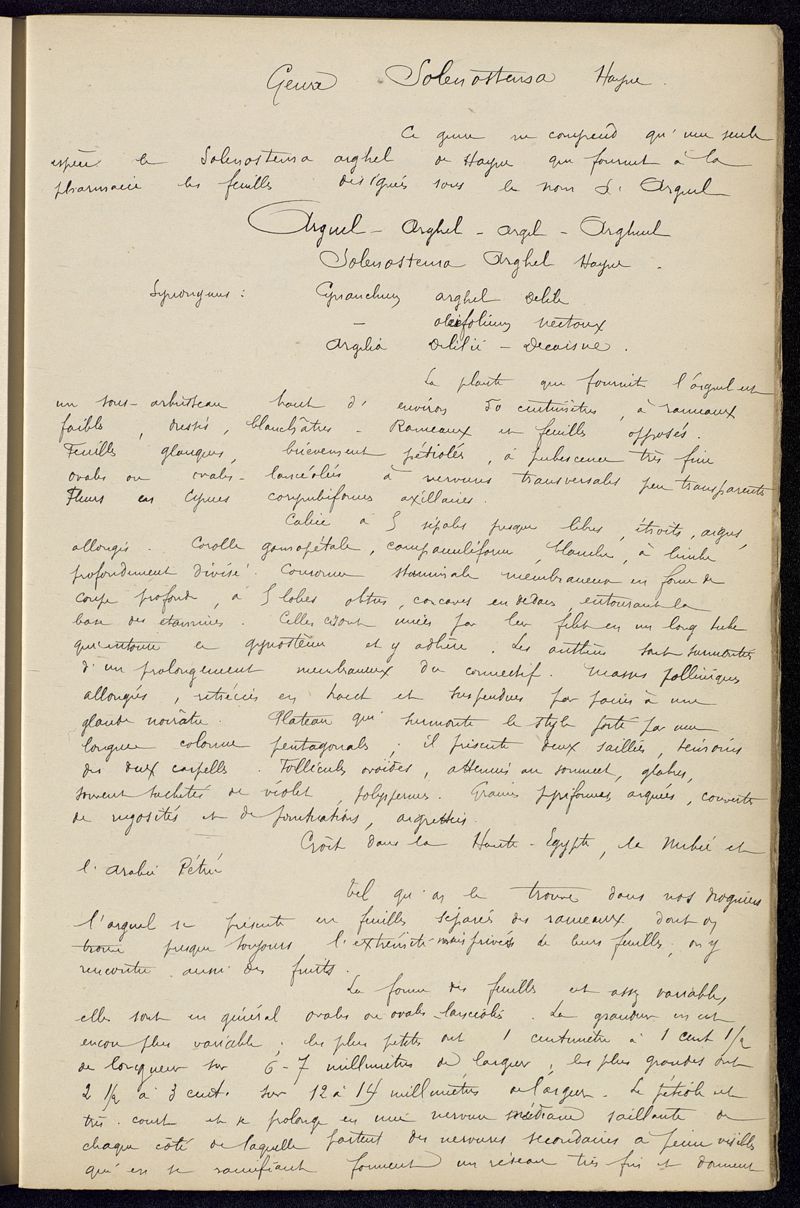 Genre Solenostema Hayne.
Ce genre ne comprend qu'une seule
espèce le Solenostema arghel de Hayne qui fournit à la
pharmacie les feuilles désignées sous le nom d'Arguel
Arguel - Arghel - argel - Arghuel
Solenostema Arghel Hayne.
Synonymes : Cynanchum arghel Delile
— oleifolium nectoux
Argelia Delilii - Decaisne.
La plante qui fournit l'arguel est
un sous-arbrisseau haut d'environ 50 centimètres, à rameaux
faibles, dressés, blanchâtres - Rameaux et feuilles opposés.
Feuilles glauques, brièvement pétiolés, à pubescence très fine
ovales ou ovales-lancéolées à nervures transversales peu transparentes
Fleurs en Cymes corymbiformes axillaires.
Calice à 5 sépales presque libres, étroits, aigus,
allongés. Corolle gamopétale, campanuliforme, blanche, à limbe
profondément divisé. Couronne staminale membraneuse en forme de
coupe profonde, à 5 lobes obtus, concaves en dedans, entourant la
base des étamines. Celles ci sont unies par leur filet en un long tube
qui entoure le gynostème et y adhère. Les anthères sont surmontées
d'un prolongement membraneux du connectif. Masses polliniques
allongées, rétrécies en haut et suspendues par paires à une
glande noirâtre. Plateau qui surmonte le style porté par une
longue colonne pentagonale; il présente deux saillies,
des deux carpelles. Follicules ovoïdes, atténués au sommet, glabres,
souvent tachetés de violet, polyspermes. Graines pyriformes, arquées, couvertes
de rugosités et de ponctuations, aigrettées.
Croît dans la Haute-Egypte, la Nubie et
l'Arabie Pétrée
Tel qu'on le trouve dans nos drogueries
l'arguel se présente en feuilles séparées des rameaux dont on
trouve presque toujours l'extrémité mais privées de leurs feuilles; on y
rencontre aussi des fruits.
La forme des feuilles est assez variable,
elles sont en général ovales ou ovales-lancéolées. La grandeur en est
encore plus variable; les plus petites ont 1 centimètre à 1 cent 1/2
de longueur sur 6-7 millimètres de largeur, les plus grandes ont
2 1/2 à 3 cent. sur 12 à 14 millimètres de largeur. Le pétiole est
très court et se prolonge en une nervure médiane saillante de
chaque côté de laquelle partent des nervures secondaires à peine visibles
qui en se ramifiant forment un réseau très fin et donnent